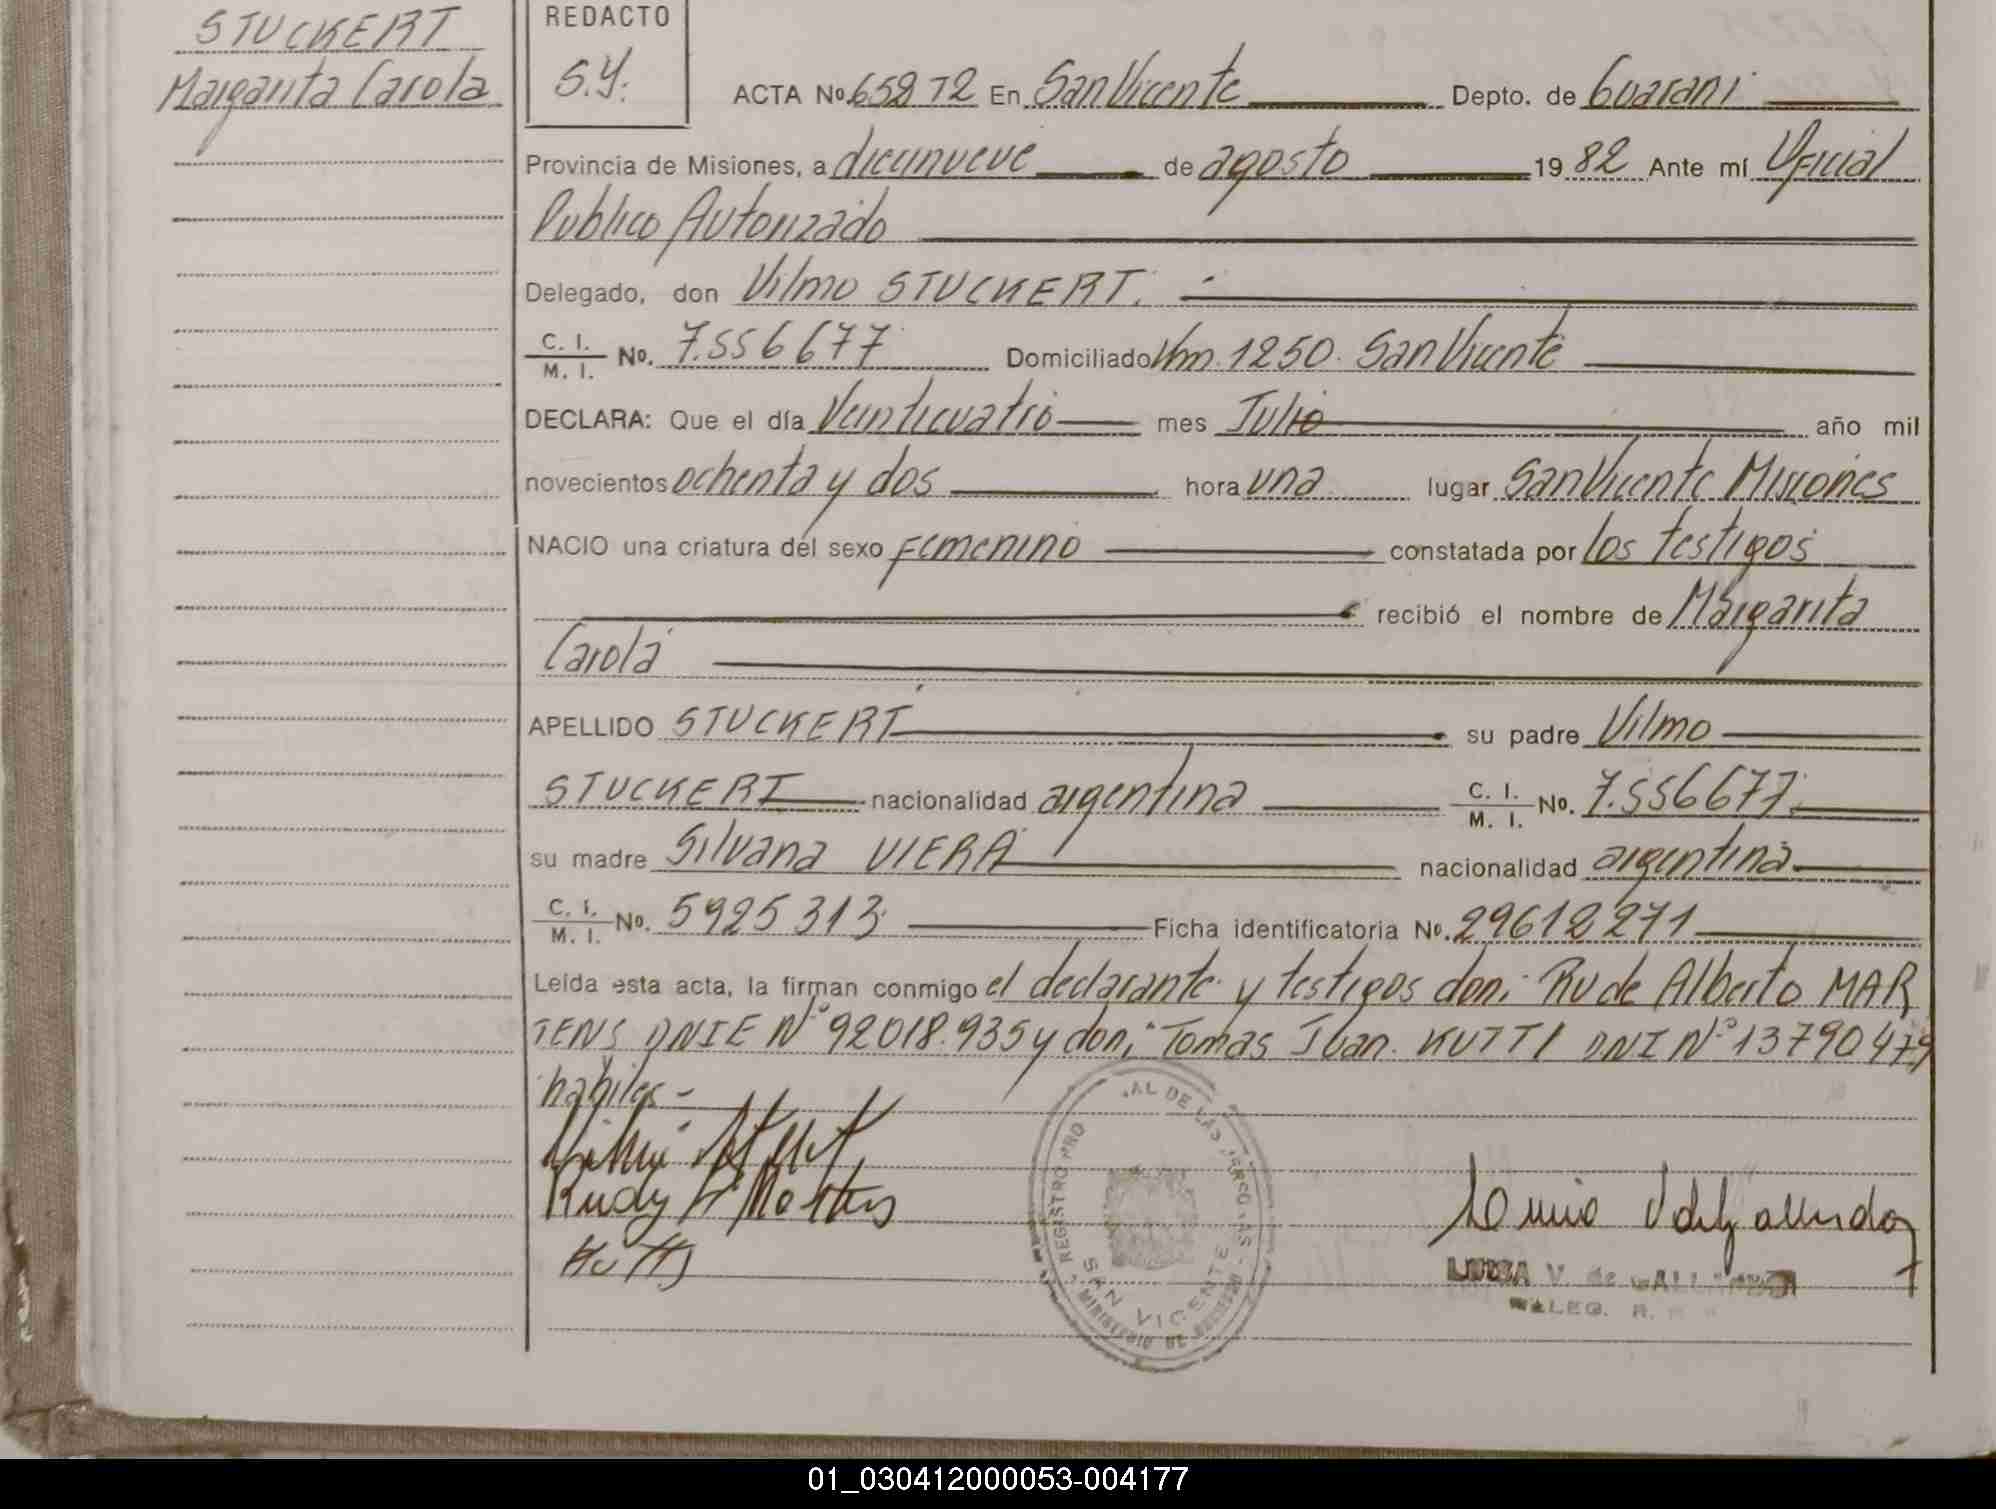 STUCKERT
Margarita Carola
REDACTO
S.Y.
ACTA No. 658 T2 En San Vicente Depto. de Guarani
Provincia de Misiones, a diecinueve de agosto 19 82 Ante mí Oficial
Publico Autorizado
Delegado, don Vilmo STUCKERT.
C. I. / M. I. No. 7.556677 Domiciliado Km. 1250. San Vicente
DECLARA: Que el día Veinticuatro mes Julio año mil
novecientos ochenta y dos hora una lugar San Vicente Misiones
NACIO una criatura del sexo femenino constatada por los testigos
recibió el nombre de Margarita
Carola
APELLIDO STUCKERT su padre Vilmo
STUCKERT nacionalidad argentina C. I. / M. I. No. 7.556677.
su madre Silvana VIERA nacionalidad argentina
C. I. / M. I. No. 5925313. Ficha identificatoria No. 29612271
Leída esta acta, la firman conmigo el declarante y testigos don: Rude Alberto MAR
TENS DNIE Nº 92018.935 y don: Tomas Juan. KUTTI DNI Nº 13790479
habiles -
Rudy A Martens
Kutti
REGISTRO PRO AL DE LAS PERSONAS
SAN VICENTE
MINISTERIO DE GOBIERNO
LUISA V. de GALLARDO
DELEG. R.
01_030412000053-004177